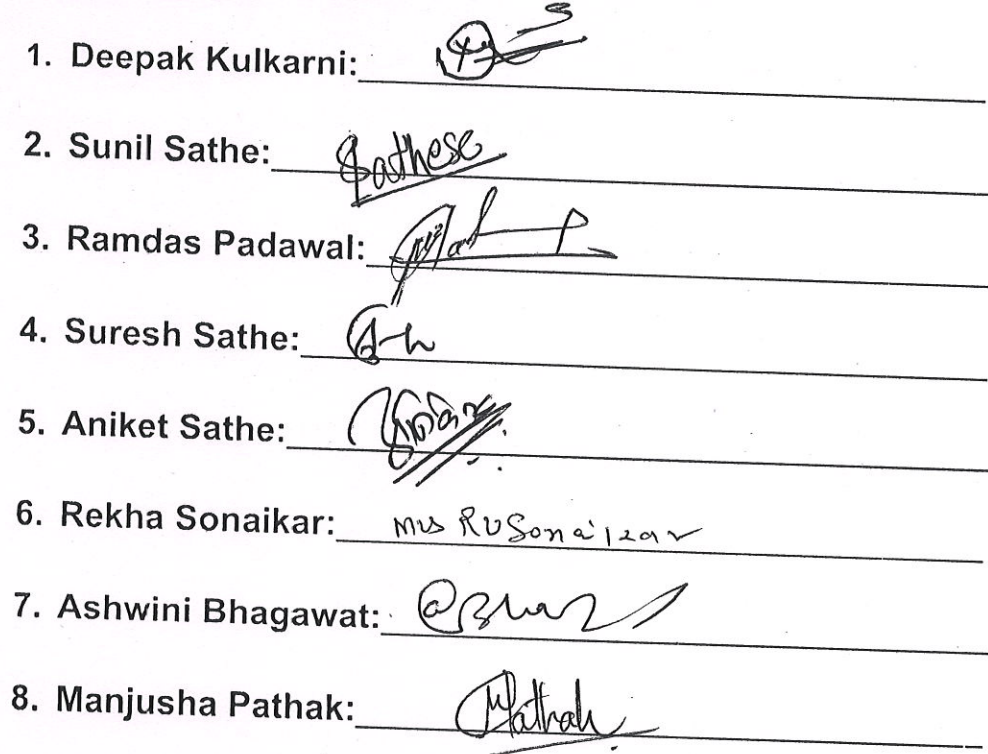 1. Deepak Kulkarni:
2. Sunil Sathe: Sathese
3. Ramdas Padawal:
4. Suresh Sathe:
5. Aniket Sathe:
6. Rekha Sonaikar: Mrs RVSonaikar
7. Ashwini Bhagawat:
8. Manjusha Pathak: MPathak